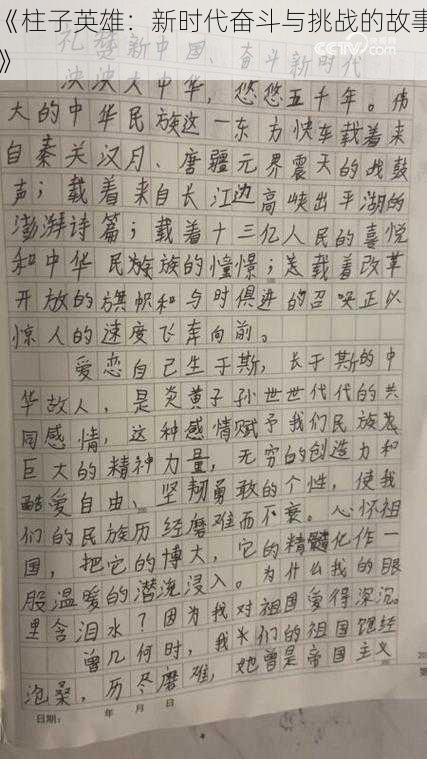 《柱子英雄：新时代奋斗与挑战的故事
》
CCTV.com
礼赞新中国、奋斗新时代
泱泱大中华，悠悠五千年。伟
大的中华民族这一东方快车载着来
自秦关汉月、唐疆元界震天的战鼓
声；载着来自长江边高峡出平湖的
澎湃诗篇；载着十三亿人民的喜悦
和中华民族族的憧憬；载着改革
开放的旗帜和与时俱进的召唤正以
惊人的速度飞奔向前。
爱恋自己生于斯，长于斯的中
华故人，是炎黄子孙世世代代的共
同感情，这种感情赋予我们民族
巨大的精神力量，无穷的创造力和
酷爱自由、坚韧勇敢的个性，使我
们的民族历经磨难而不衰。心怀祖
国，把它的博大，它的精髓化作一
股温暖的潜浸入。为什么我的眼
里含泪水？因为我对祖国爱得深沉。
曾几何时，我们的祖国饱经
沧桑，历尽磨难，她曾是帝国主义
日期： 年 月 日